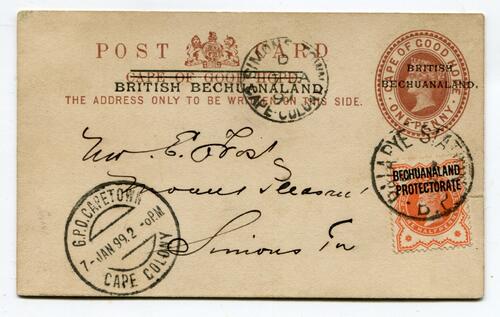 POST CARD
CAPE OF GOOD HOPE.
BRITISH BECHUANALAND.
THE ADDRESS ONLY TO BE WRITTEN ON THIS SIDE.
SIMONS TOWN
CAPE COLONY
CAPE OF GOOD HOPE
BRITISH
BECHUANALAND.
ONE PENNY
E. Frost
Mount Pleasant
Simons Tn
STATION
BECHUANALAND
PROTECTORATE
G.P.O. CAPETOWN
7-JAN 99.2-PM
CAPE COLONY